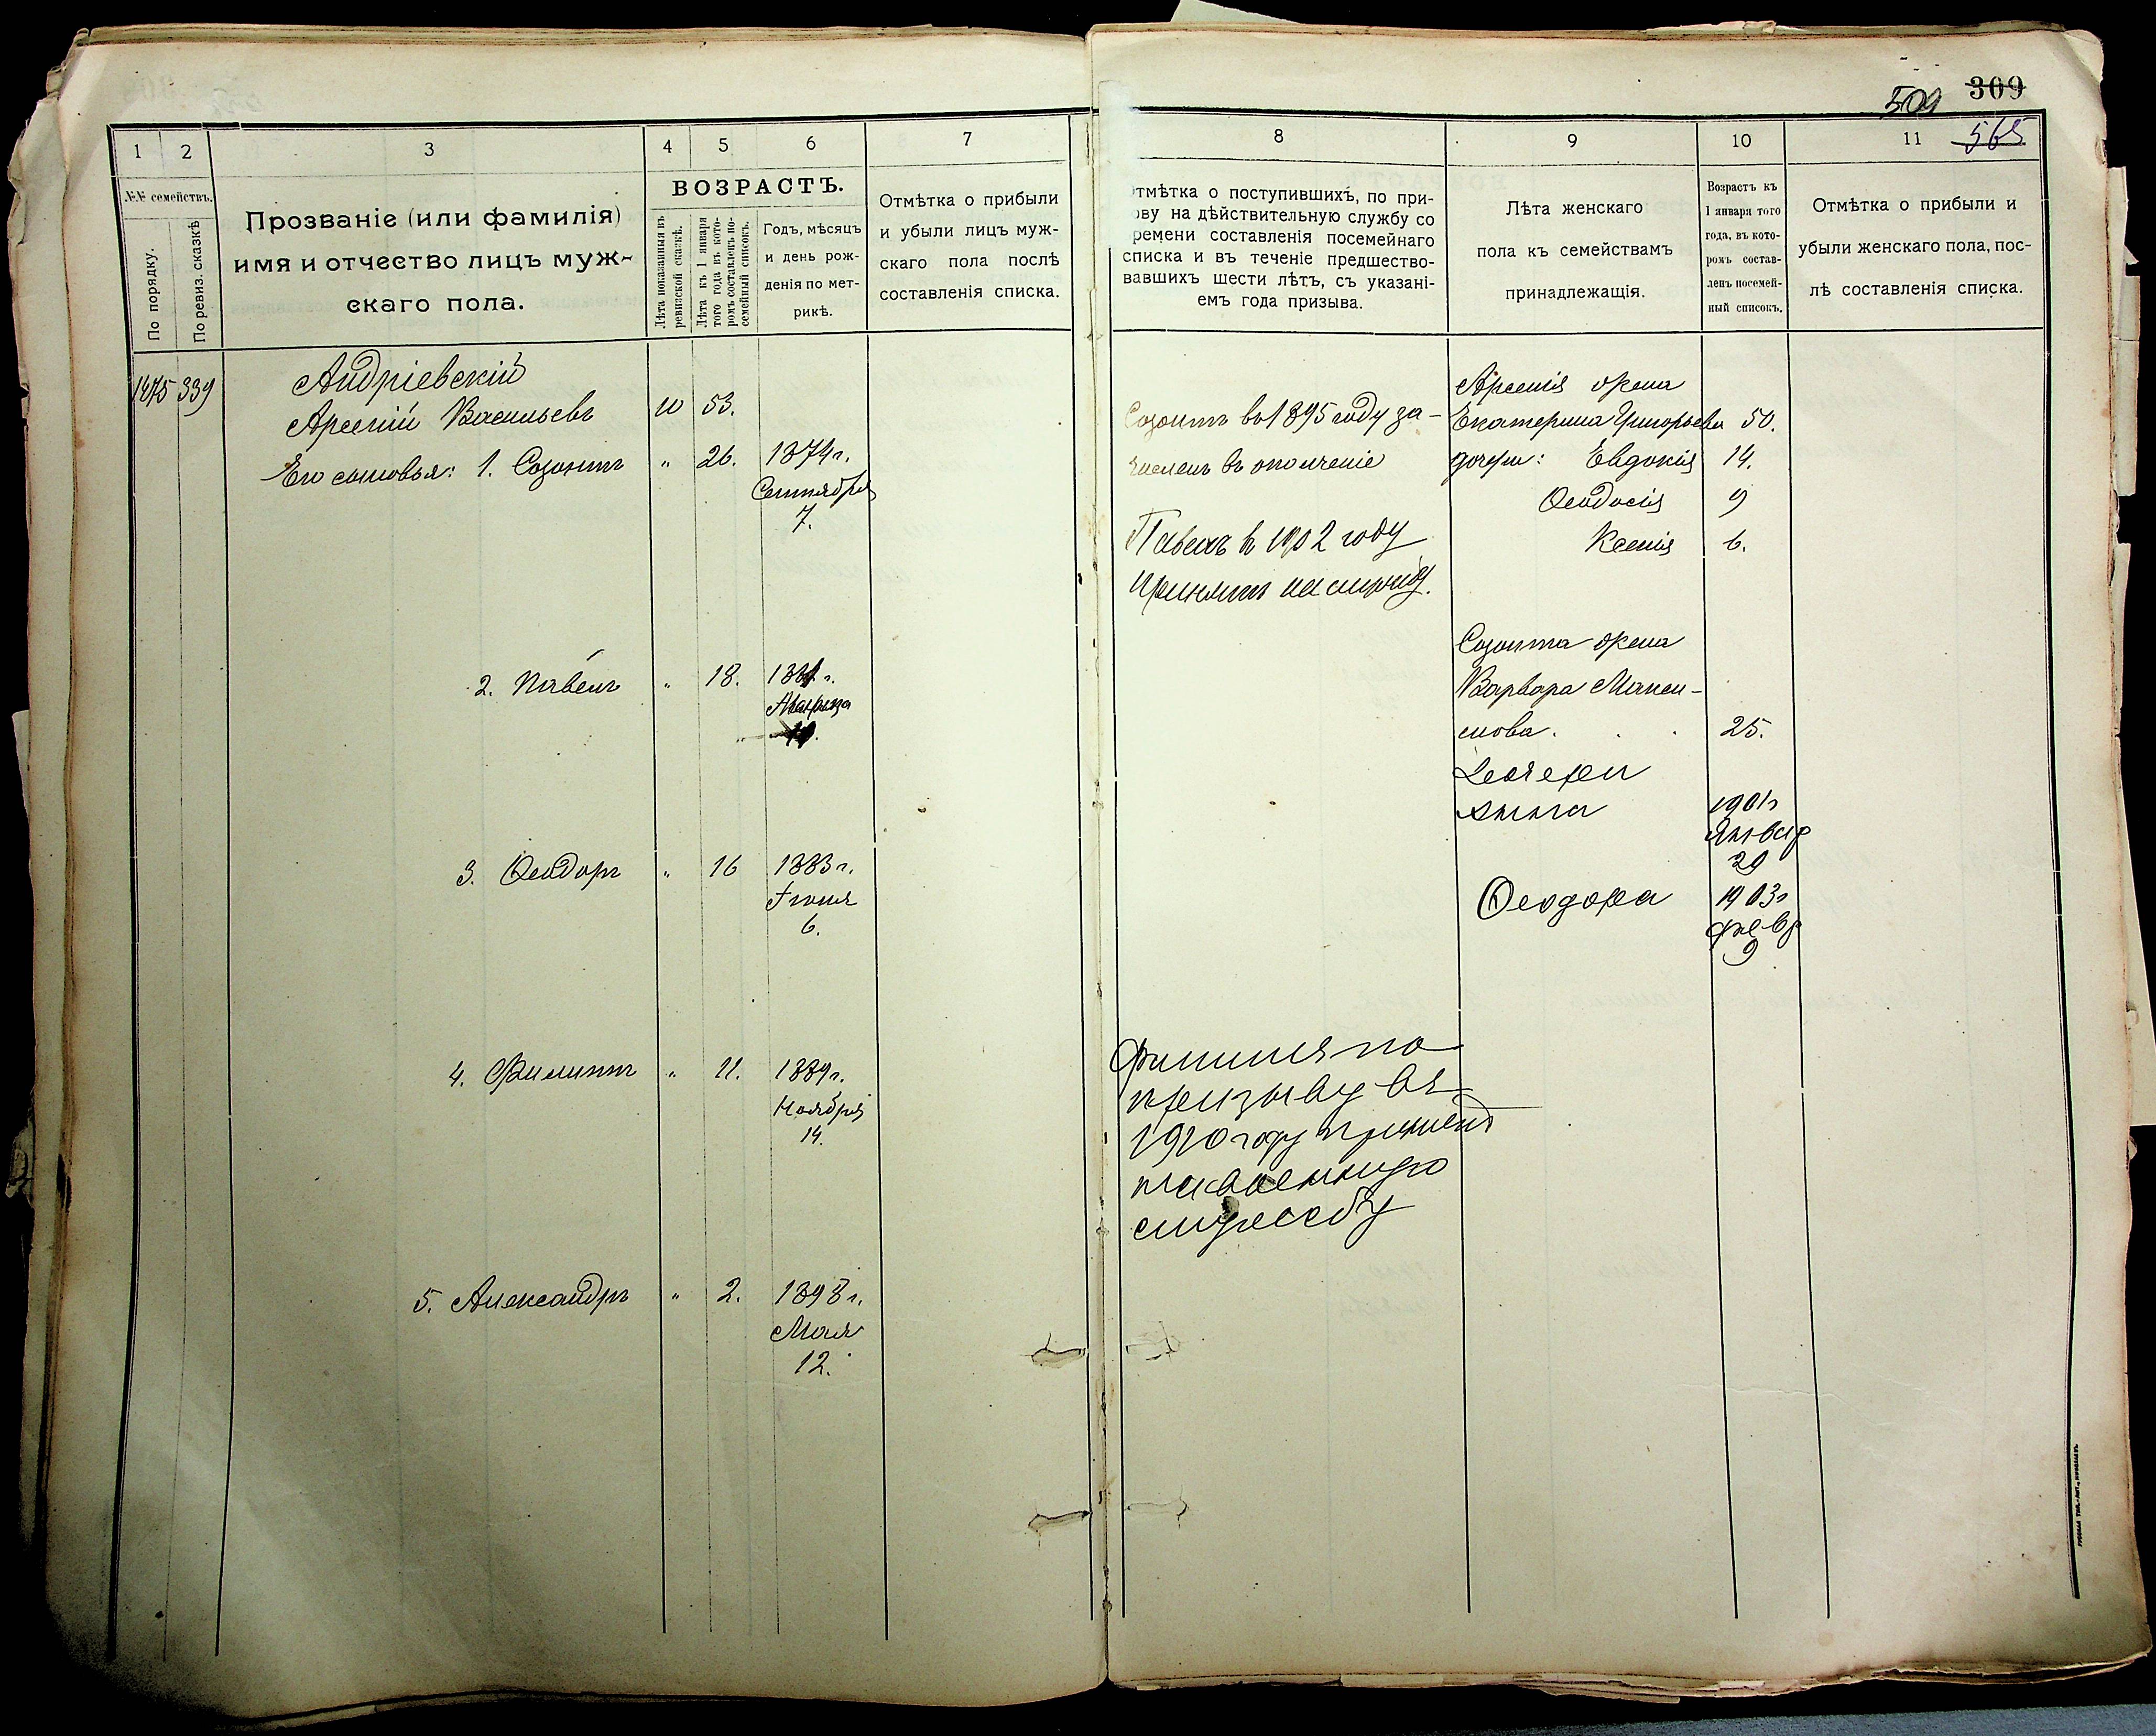 309
509
565
1
2
3
4
5
6
7
№№ семействъ.
По порядку.
По ревиз. сказкѣ
Прозваніе (или фамилія)
имя и отчество лицъ муж-
скаго пола.
ВОЗРАСТЪ.
Лѣта показанныя въ
ревизской сказкѣ.
Лѣта къ 1 января
того года въ кото-
ромъ составленъ по-
семейный списокъ.
Годъ, мѣсяцъ
и день рож-
денія по мет-
рикѣ.
Отмѣтка о прибыли
и убыли лицъ муж-
скаго пола послѣ
составленія списка.
1475 339
Андріевскій
Арсеній Васильевъ 10 53.
Его сыновья: 1. Созонтъ " 26. 1874 г.
Сентября
7.
2. Павелъ " 18. 1881 г.
3. Ѳеодоръ " 16 1883 г.
Іюня
6.
4. Филиппъ " 11. 1889 г.
Ноября
14.
5. Александръ " 2. 1898 г.
Мая
12.
8
9
10
11
тмѣтка о поступившихъ, по при-
ову на дѣйствительную службу со
ремени составленія посемейнаго
списка и въ теченіе предшество-
вавшихъ шести лѣтъ, съ указані-
емъ года призыва.
Лѣта женскаго
пола къ семействамъ
принадлежащія.
Возрастъ къ
1 января того
года, въ кото-
ромъ состав-
ленъ посемей-
ный списокъ.
Отмѣтка о прибыли и
убыли женскаго пола, пос-
лѣ составленія списка.
Созонтъ въ 1895 году за-
численъ въ ополченіе
Павелъ в 1902 году
принятъ на службу.
Филиппъ по
призыву въ
1910 году принятъ
на военную
службу
Арсенія жена
Екатерина Григорьева 50.
дочери: Евдокія 14.
Ѳеодосія 9
Ксенія 6.
Созонта жена
Варвара Макси-
мова. 25.
Дочери
Анна 1901 г
Январ
20
Ѳеодора 1903 г
февр
9